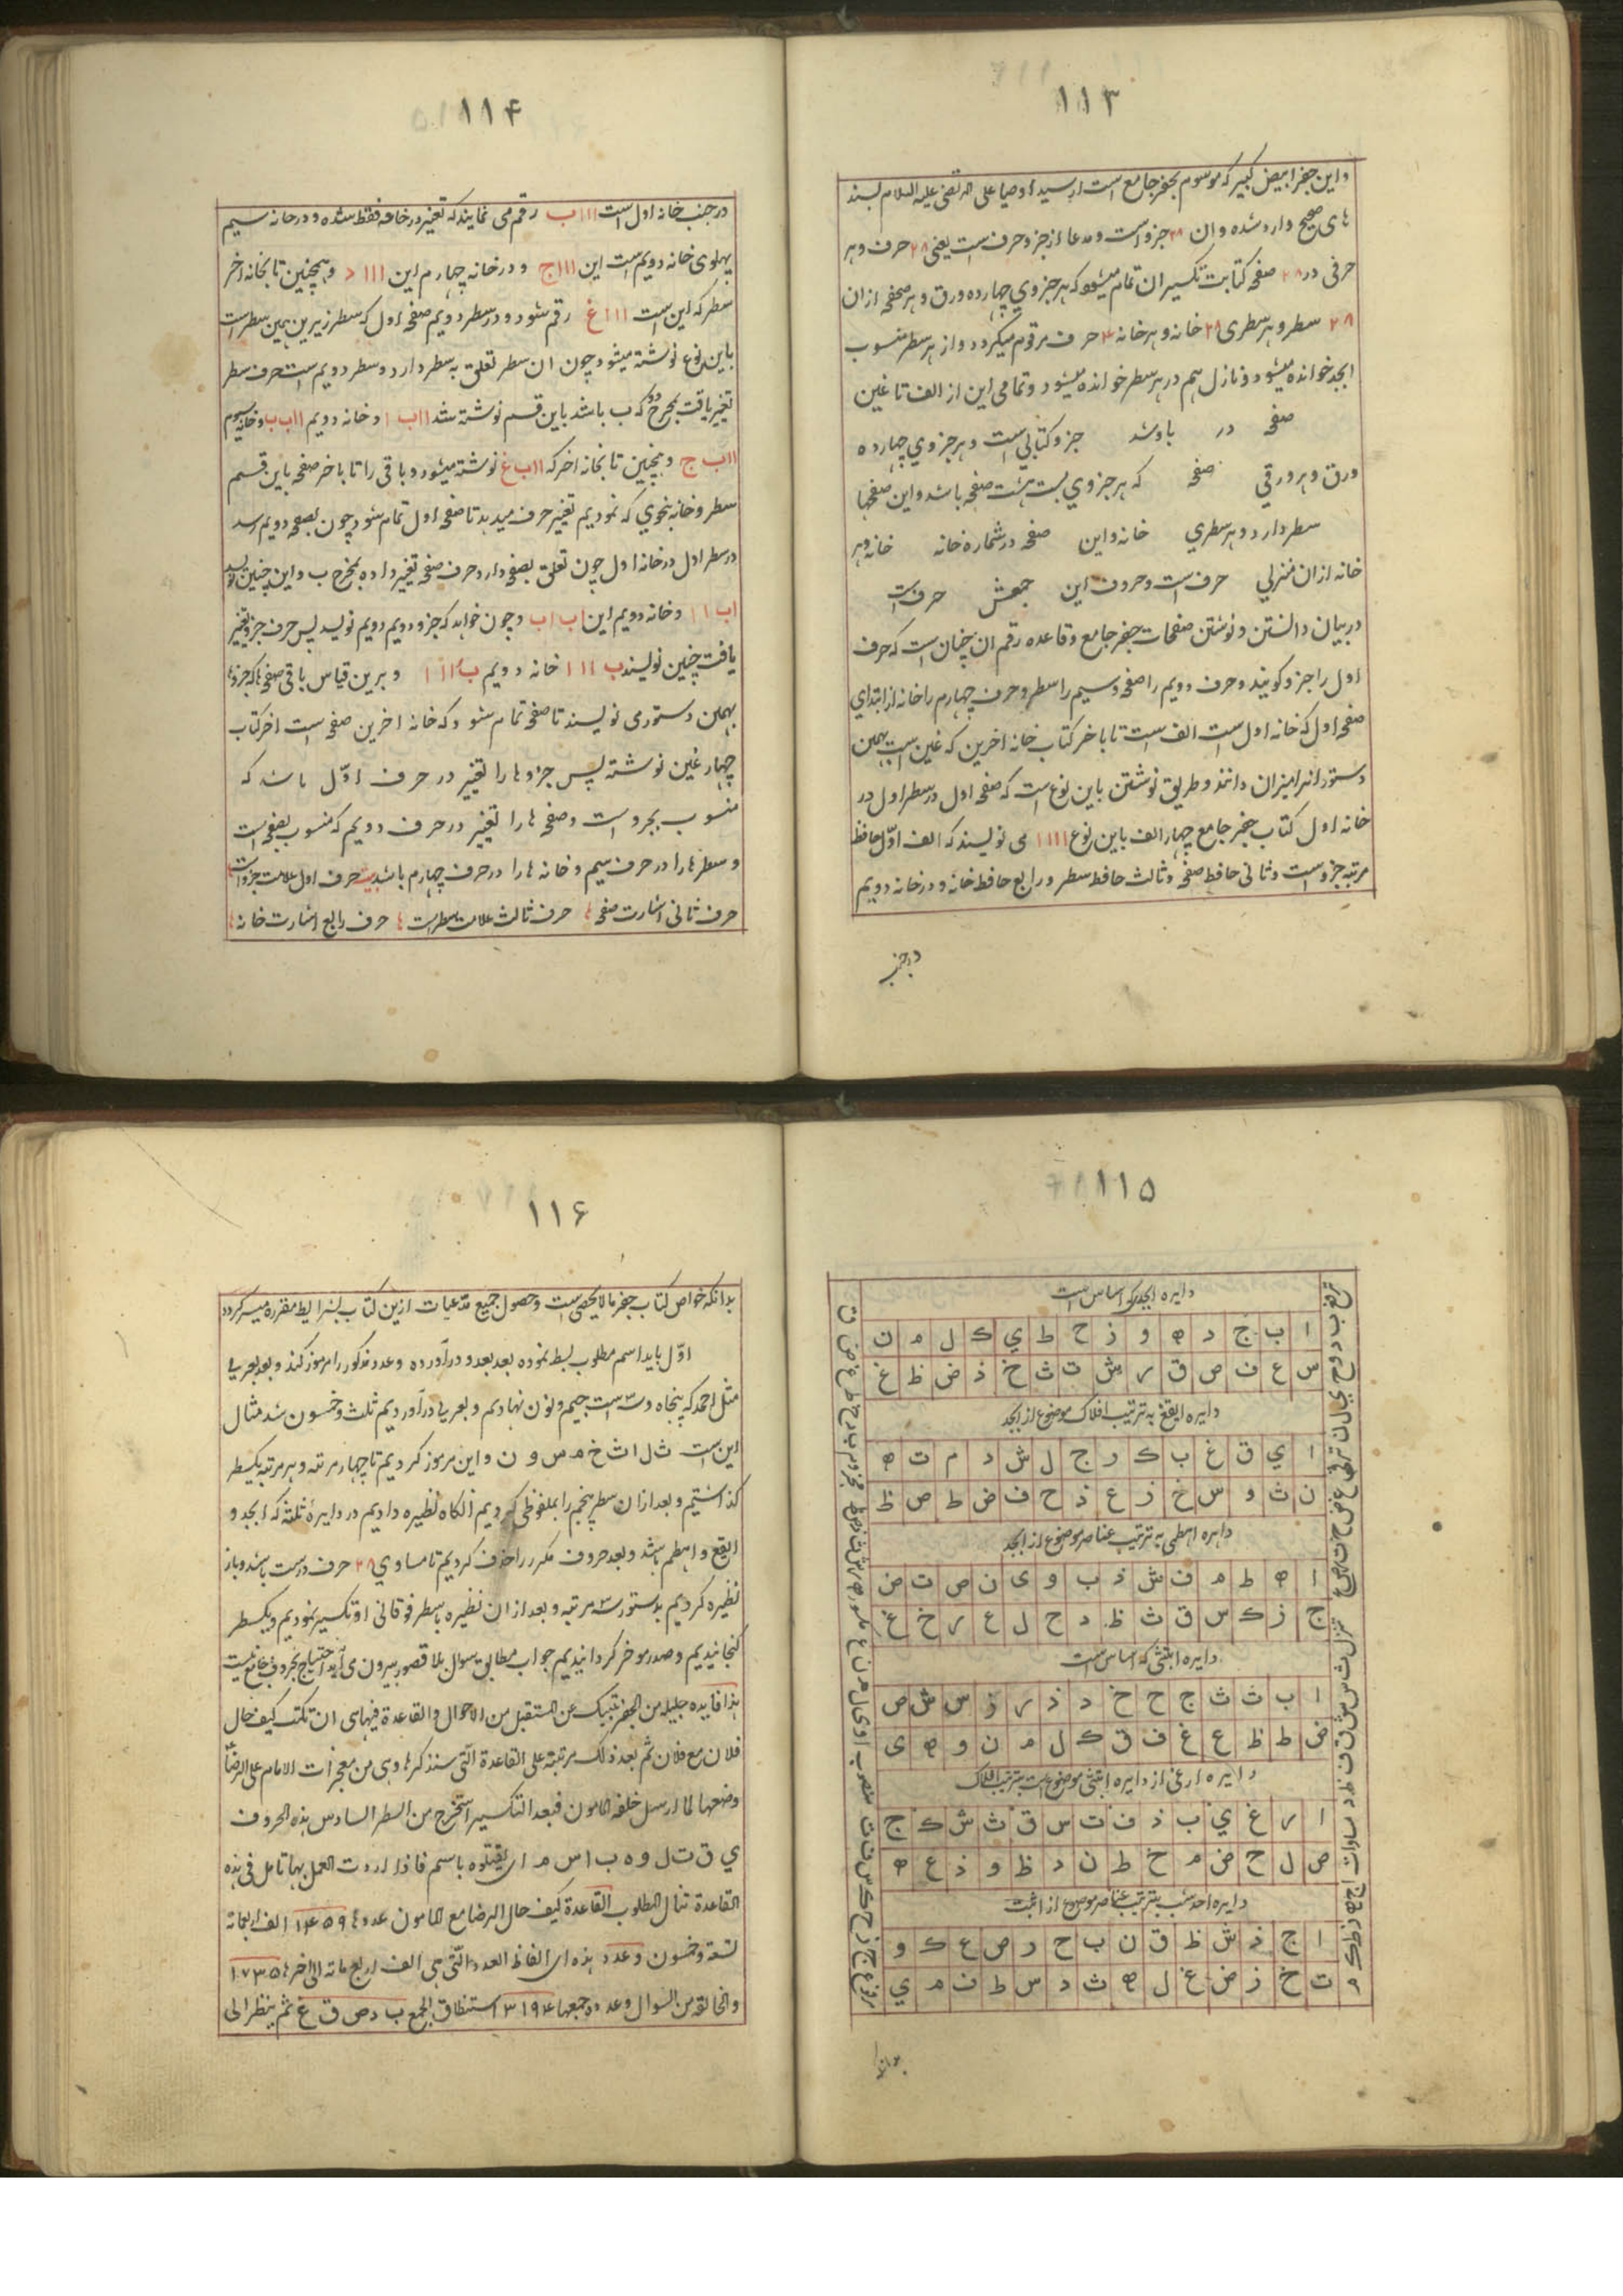 ۱۱۳
و این جفر ابیض کبیر که موسوم بجفر جامع است از سید اوصیا علی مرتضی علیه السلام بسند
های صحیح وارد شده و ان ۲۸ جزو است و مدعا از جزو حرف است یعنی ۲۸ حرف و هر
حرفی در ۲۸ صفحه کتابت تکسیر ان تمام میشود که هر جزوی چهارده ورق و هر صحفه از ان
۲۸ سطر و هر سطری ۲۸ خانه و هر خانه ۴ حرف مرقوم میگردد و از هر سطر منسوب
ابجد خوانده میشود و نازل هم در هر سطر خوانده میشود و تمامی این از الف تا غین
صفحه در باشد جزو کتابی است و هر جزوی چهارده
ورق و هر ورقی صفحه که هر جزوی بیست هشت صفحه باشد و این صفحها
سطر دارد و هر سطری خانه و این صفحه در شماره خانه خانه و هر
خانه از ان منزلی حرف است و حروف این جمعش حرف است
در بیان دانستن و نوشتن صفحات جفر جامع و قاعده رقم ان چنان است که حرف
اول را جزو کویند و حرف دویم را صفحه و سیم را سطر و حرف چهارم را خانه از ابتدای
صفحه اول که خانه اول است الف است تا باخر کتاب خانه اخرین که غین است بهمین
دستور انرا میزان دانند و طریق نوشتن باین نوع است که صفحه اول در سطر اول در
خانه اول کتاب جفر جامع چهار الف باین نوع ا ا ا ا می نویسند که الف اوّل حافظ
مرتبه جزو است و ثانی حافظ صفحه و ثالث حافظ سطر و رابع حافظ خانه و در خانه دویم
در جنب
۱۱۴
در جنب خانه اول است ا ا ا ب رقم می نمایند که تغییر در خانه فقط شده و در خانه سیم
پهلوی خانه دویم است این ا ا ا ج و در خانه چهارم این ا ا ا د و همچنین تا بخانه اخر
سطر که این است ا ا ا غ رقم شود و در سطر دویم صفحه اول که سطر زیرین همین سطر است
باین نوع نوشته میشود چون ان سطر تعلق به سطر دارد و سطر دویم است حرف سطر
تغییر یافت بمخرج دو که ب باشد باین قسم نوشته شد ا ا ب ا و خانه دویم ا ا ب ب و خانه سیوم
ا ا ب ج و همچنین تا بخانه اخر که ا ا ب غ نوشته میشود و باقی را تا باخر صفحه باین قسم
سطر و خانه بنحوی که نمودیم تغییر حرف میدهد تا صفحه اول تمام شود چون بصفحه دویم رسد
در سطر اول در خانه اول چون تعلق بصفحه دارد حرف صفحه تغییر داده بمخرج ب و این چنین نویسد
ا ب ا ا و خانه دویم این ا ب ا ب و چون خواهد که جزو دویم نویسد پس حرف جزو تغییر
یافت چنین نویسند ب ا ا ا خانه دویم ب ا ا ب و برین قیاس باقی صفحه ها که جزوها
بهمین دستور می نویسند تا صفحه تمام شود که خانه اخرین صفحه است اخر کتاب
چهار غین نوشته پس جزوها را تغییر در حرف اوّل باشد که
منسوب بجزو است و صفحه ها را تغییر در حرف دویم که منسوب بصفحه است
و سطرها را در حرف سیم و خانه ها را در حرف چهارم باشد حرف اول علامت جزو است
حرف ثانی اشارت صفحه حرف ثالث علامت سطر است حرف رابع اشارت خانه
۱۱۵
دایره ابجد که اساس است
ا ب ج د ه و ز ح ط ي ک ل م ن
س ع ف ص ق ر ش ت ث خ ذ ض ظ غ
دایره ایقغ به ترتیب افلاک موضوع از ابجد
ا ي ق غ ب ک ر ج ل ش د م ت ه
ن ث و س خ ز ع ذ ح ف ض ط ص ظ
دایره اهطمی به ترتیب عناصر موضوع از ابجد
ا ه ط م ف ش ذ ب و ی ن ص ت ض
ج ز ک س ق ث ظ د ح ل ع ر خ غ
دایره ابتثی که اساس است
ا ب ت ث ج ح خ د ذ ر ز س ش ص
ض ط ظ ع غ ف ق ک ل م ن و ه ی
دایره ارغی از دایره ابتثی موضوع است بترتیب افلاک
ا ر غ ي ب ذ ف ت س ق ث ش ک ج
ص ل ح ض م خ ط ن د ظ و ذ ع ه
دایره احدسب بترتیب عناصر موضوع از ابتث
ا ج ذ ش ظ ق ن ب ح ر ص ع ک و
ت خ ز ض غ ل ه ث د س ط ف م ي
بدانکه
۱۱۶
بدانکه خواص کتاب جفر مالایحصی است و حصول جمیع مدعیات ازین کتاب بشرایط مقرره میسر کردد
اوّل باید اسم مطلوب بسط نموده بعد بعدد در آورده و عدد مذکور را مرموز کند و بعد بعربی
مثل احمد که پنجاه و سه است جیم و نون نهادیم و بعربی در آوردیم ثلث و خمسون شد مثال
این است ث ل ا ث خ م س و ن و این مرموز کردیم تا چهار مرتبه و هر مرتبه یکسطر
کذاشتیم و بعد از ان سطر پنجم را بملفوظی کردیم انکاه نظیره دادیم در دایره ثلثه که ابجد و
ایقغ و اهطم باشد و بعد حروف مکرر را حذف کردیم تا مساوی ۲۸ حرف درست باشد و باز
نظیره کردیم بدستور سه مرتبه و بعد از ان نظیره با سطر فوقانی او تکسیر نمودیم و یکسطر
کنجانیدیم و صدر موخر کردانیدیم جواب مطابق سوال بلا قصور بیرون می آید احتیاج بحروف خارج نیست
هذا فایده جلیله من الجفر تنبیک عن المستقبل من الاحوال والقاعدة فیها هی ان تکتب کیف حال
فلان مع فلان ثم بعد ذلک مرتبة علی القاعدة التی سنذکرها وهی من معجزات الامام علی الرضا
وضعها لما ارسل خلفه المامون فبعد التکسیر استخرج من السطر السادس هذه الحروف
ي ق ت ل و ه ب ا س م ای یقتلوه باسم فاذا اردت العمل بها تامل فی هذه
القاعدة تنال المطلوب القاعدة کیف حال الرضا مع المامون عددها ۱۴۵۹ الف اربعمائة
تسعة وخمسون وعدد هذه ای الفاظ العدد التی هی الف اربع مائه الی اخرها ۱۷۳۵
والخالق من السوال وعدده جمیعها ۳۱۹۴ استنطاق الجمع ب د ص ق غ ثم ینظر الی